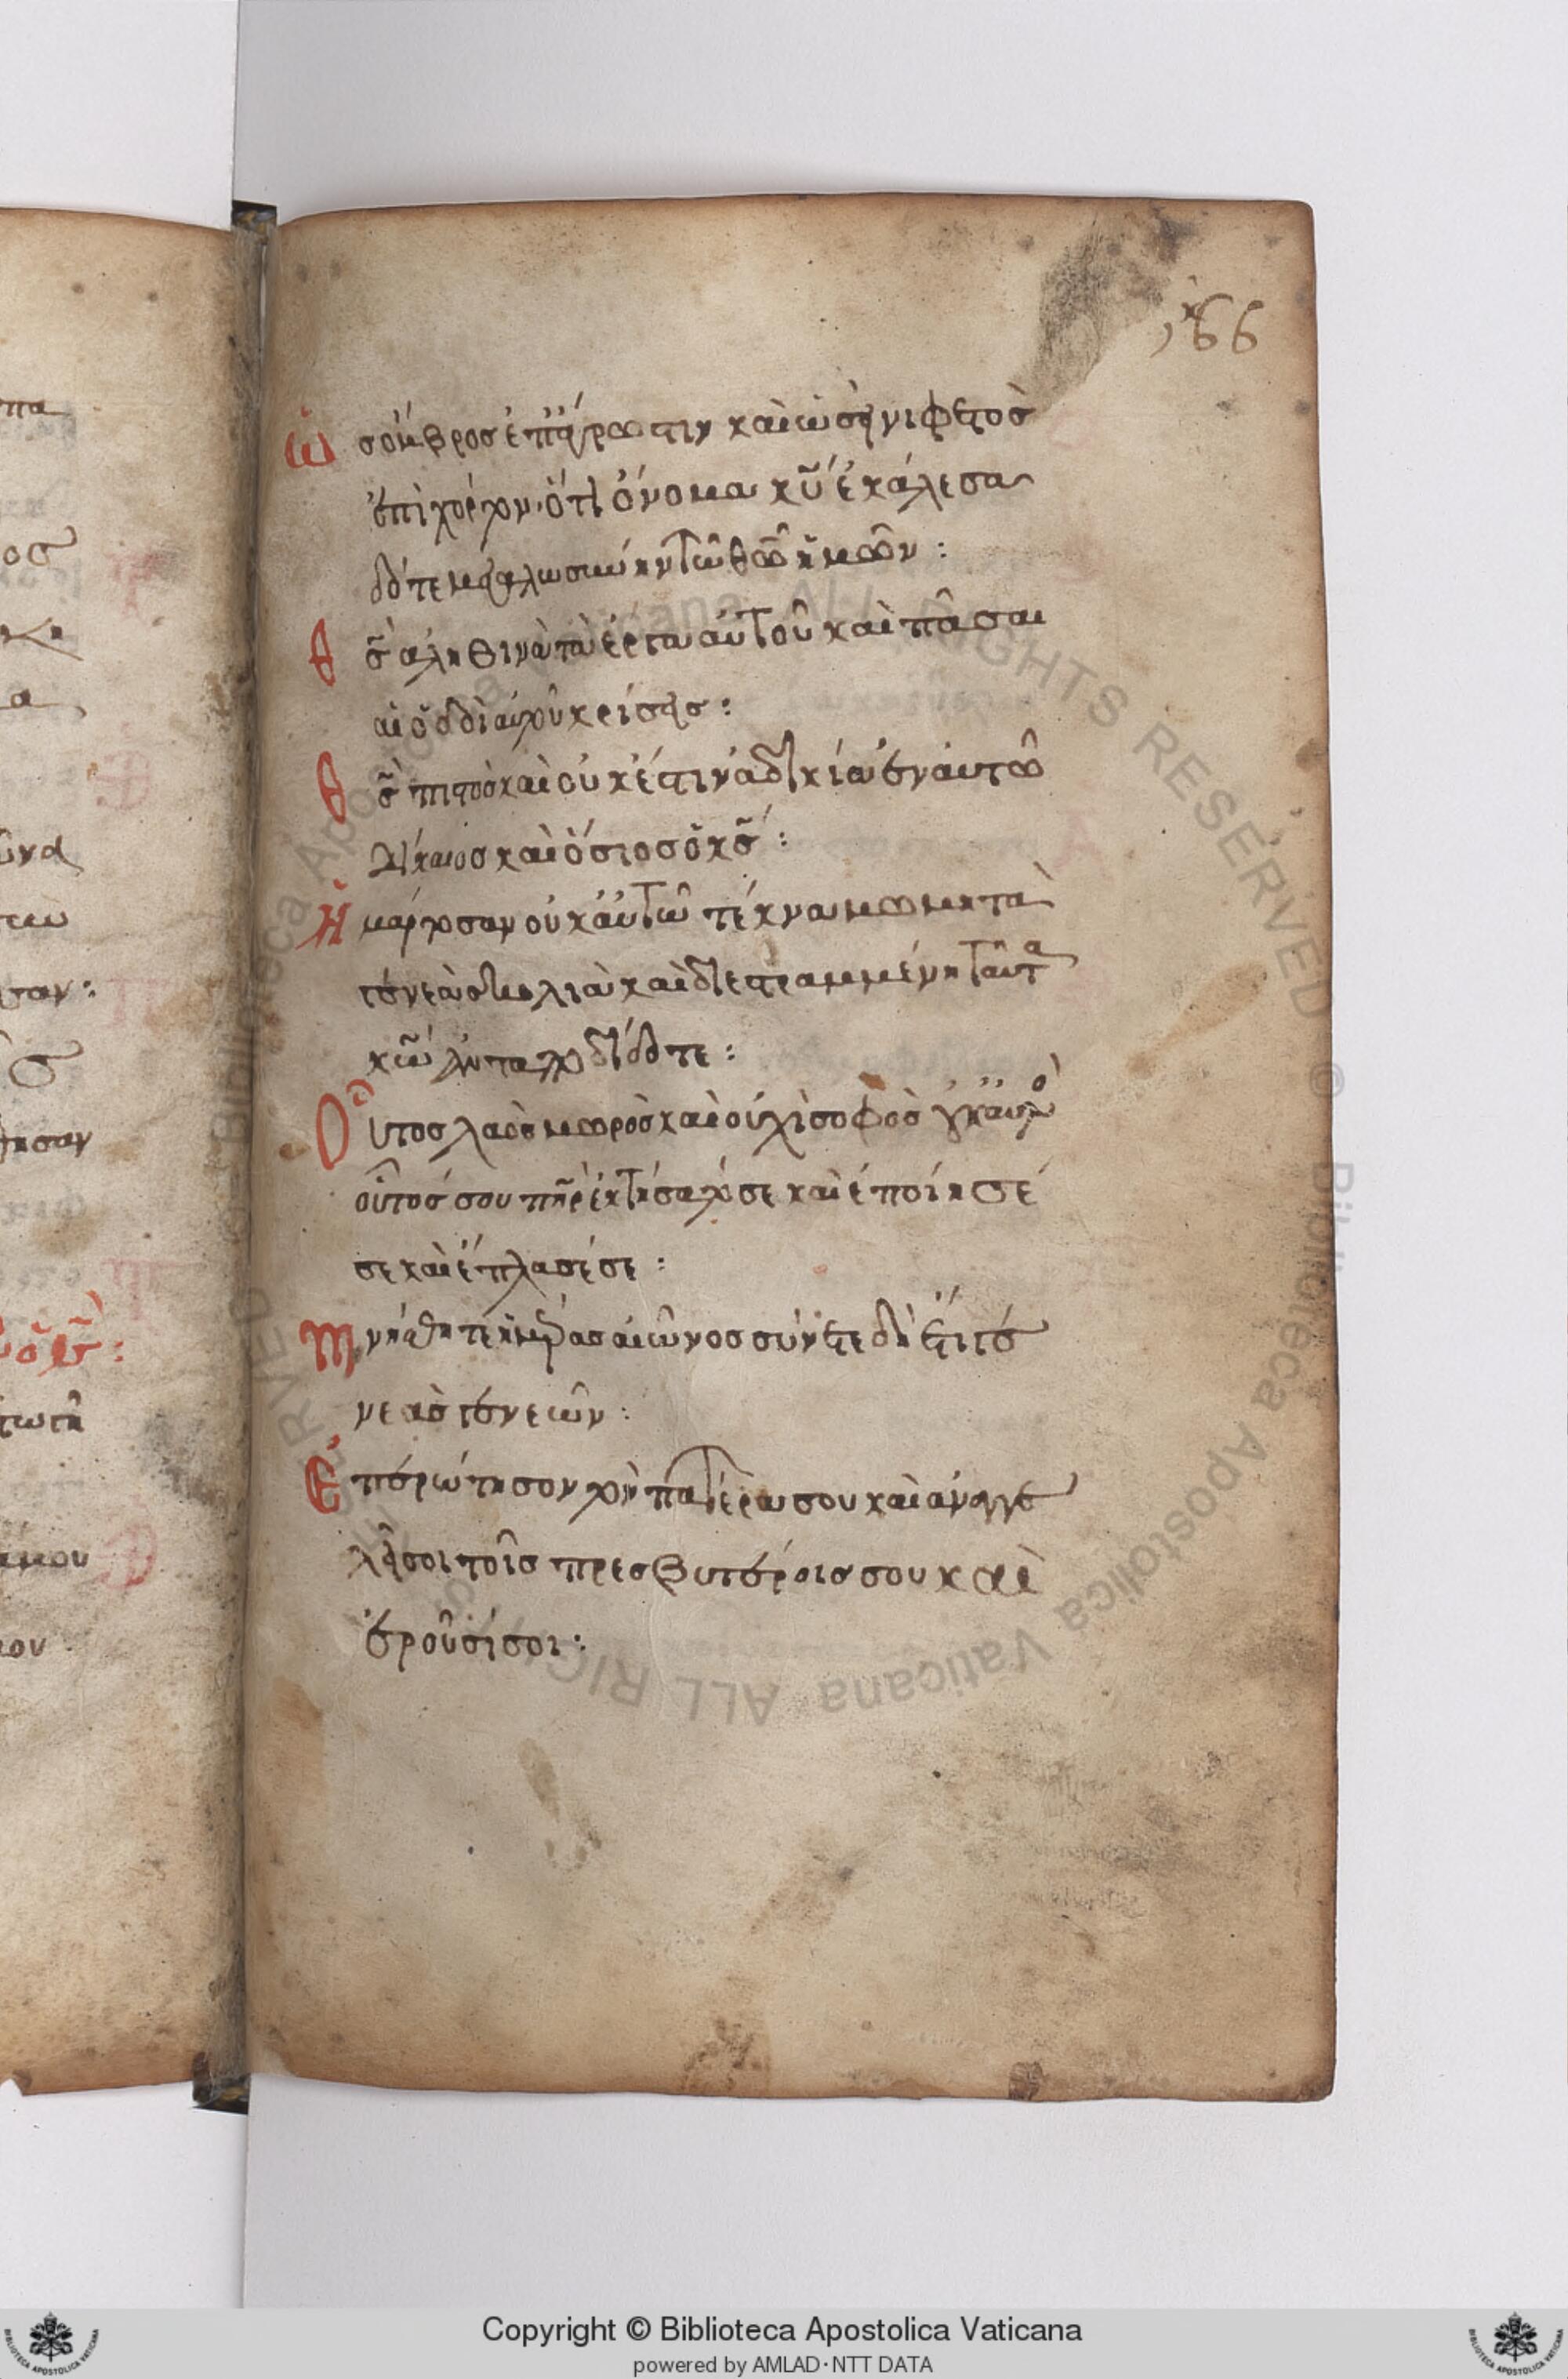 166
Ὡσ ὄμβροσ ἐπ' ἄγρωστιν καὶ ὡσεὶ νιφετὸσ
ἐπὶ χόρτον· ὅτι ὄνομα κυ ἐκάλεσα
δότε μεγαλωσύνην τῶ θῶ ἡμῶν :
Θσ ἀληθινὰ τὰ ἔργα αὐτοῦ καὶ πᾶσαι
αἱ ὁδοὶ αὐτοῦ κρίσεισ :
Θσ πιστὸσ καὶ οὐκ ἔστιν ἀδικία ἐν αὐτῶ
δίκαιοσ καὶ ὅσιοσ ὁ κσ :
Ἡμάρτοσαν οὐκ αὐτῶ τέκνα μωμητὰ
γενεὰ σκολιὰ καὶ διεστραμμένη ταῦτα
κω ἀνταποδίδοτε :
Οὗτοσ λαὸσ μωρὸσ καὶ οὐχὶ σοφὸσ οὐκ αὐτὸσ
οὗτόσ σου πηρ ἐκτήσατό σε καὶ ἐποίησέ
σε καὶ ἔπλασέ σε :
Μνήσθητε ἡμέρασ αἰῶνοσ σύνετε δὴ ἔτι γε
νεὰσ γενεῶν :
Ἐπερώτησον τὸν πατέρα σου καὶ ἀναγγε
λεῖ σοι τοῖσ πρεσβυτέροισ σου καὶ
ἐροῦσί σοι :
οσ
α
σαν :
θησαν
μου
Copyright © Biblioteca Apostolica Vaticana
powered by AMLAD·NTT DATA